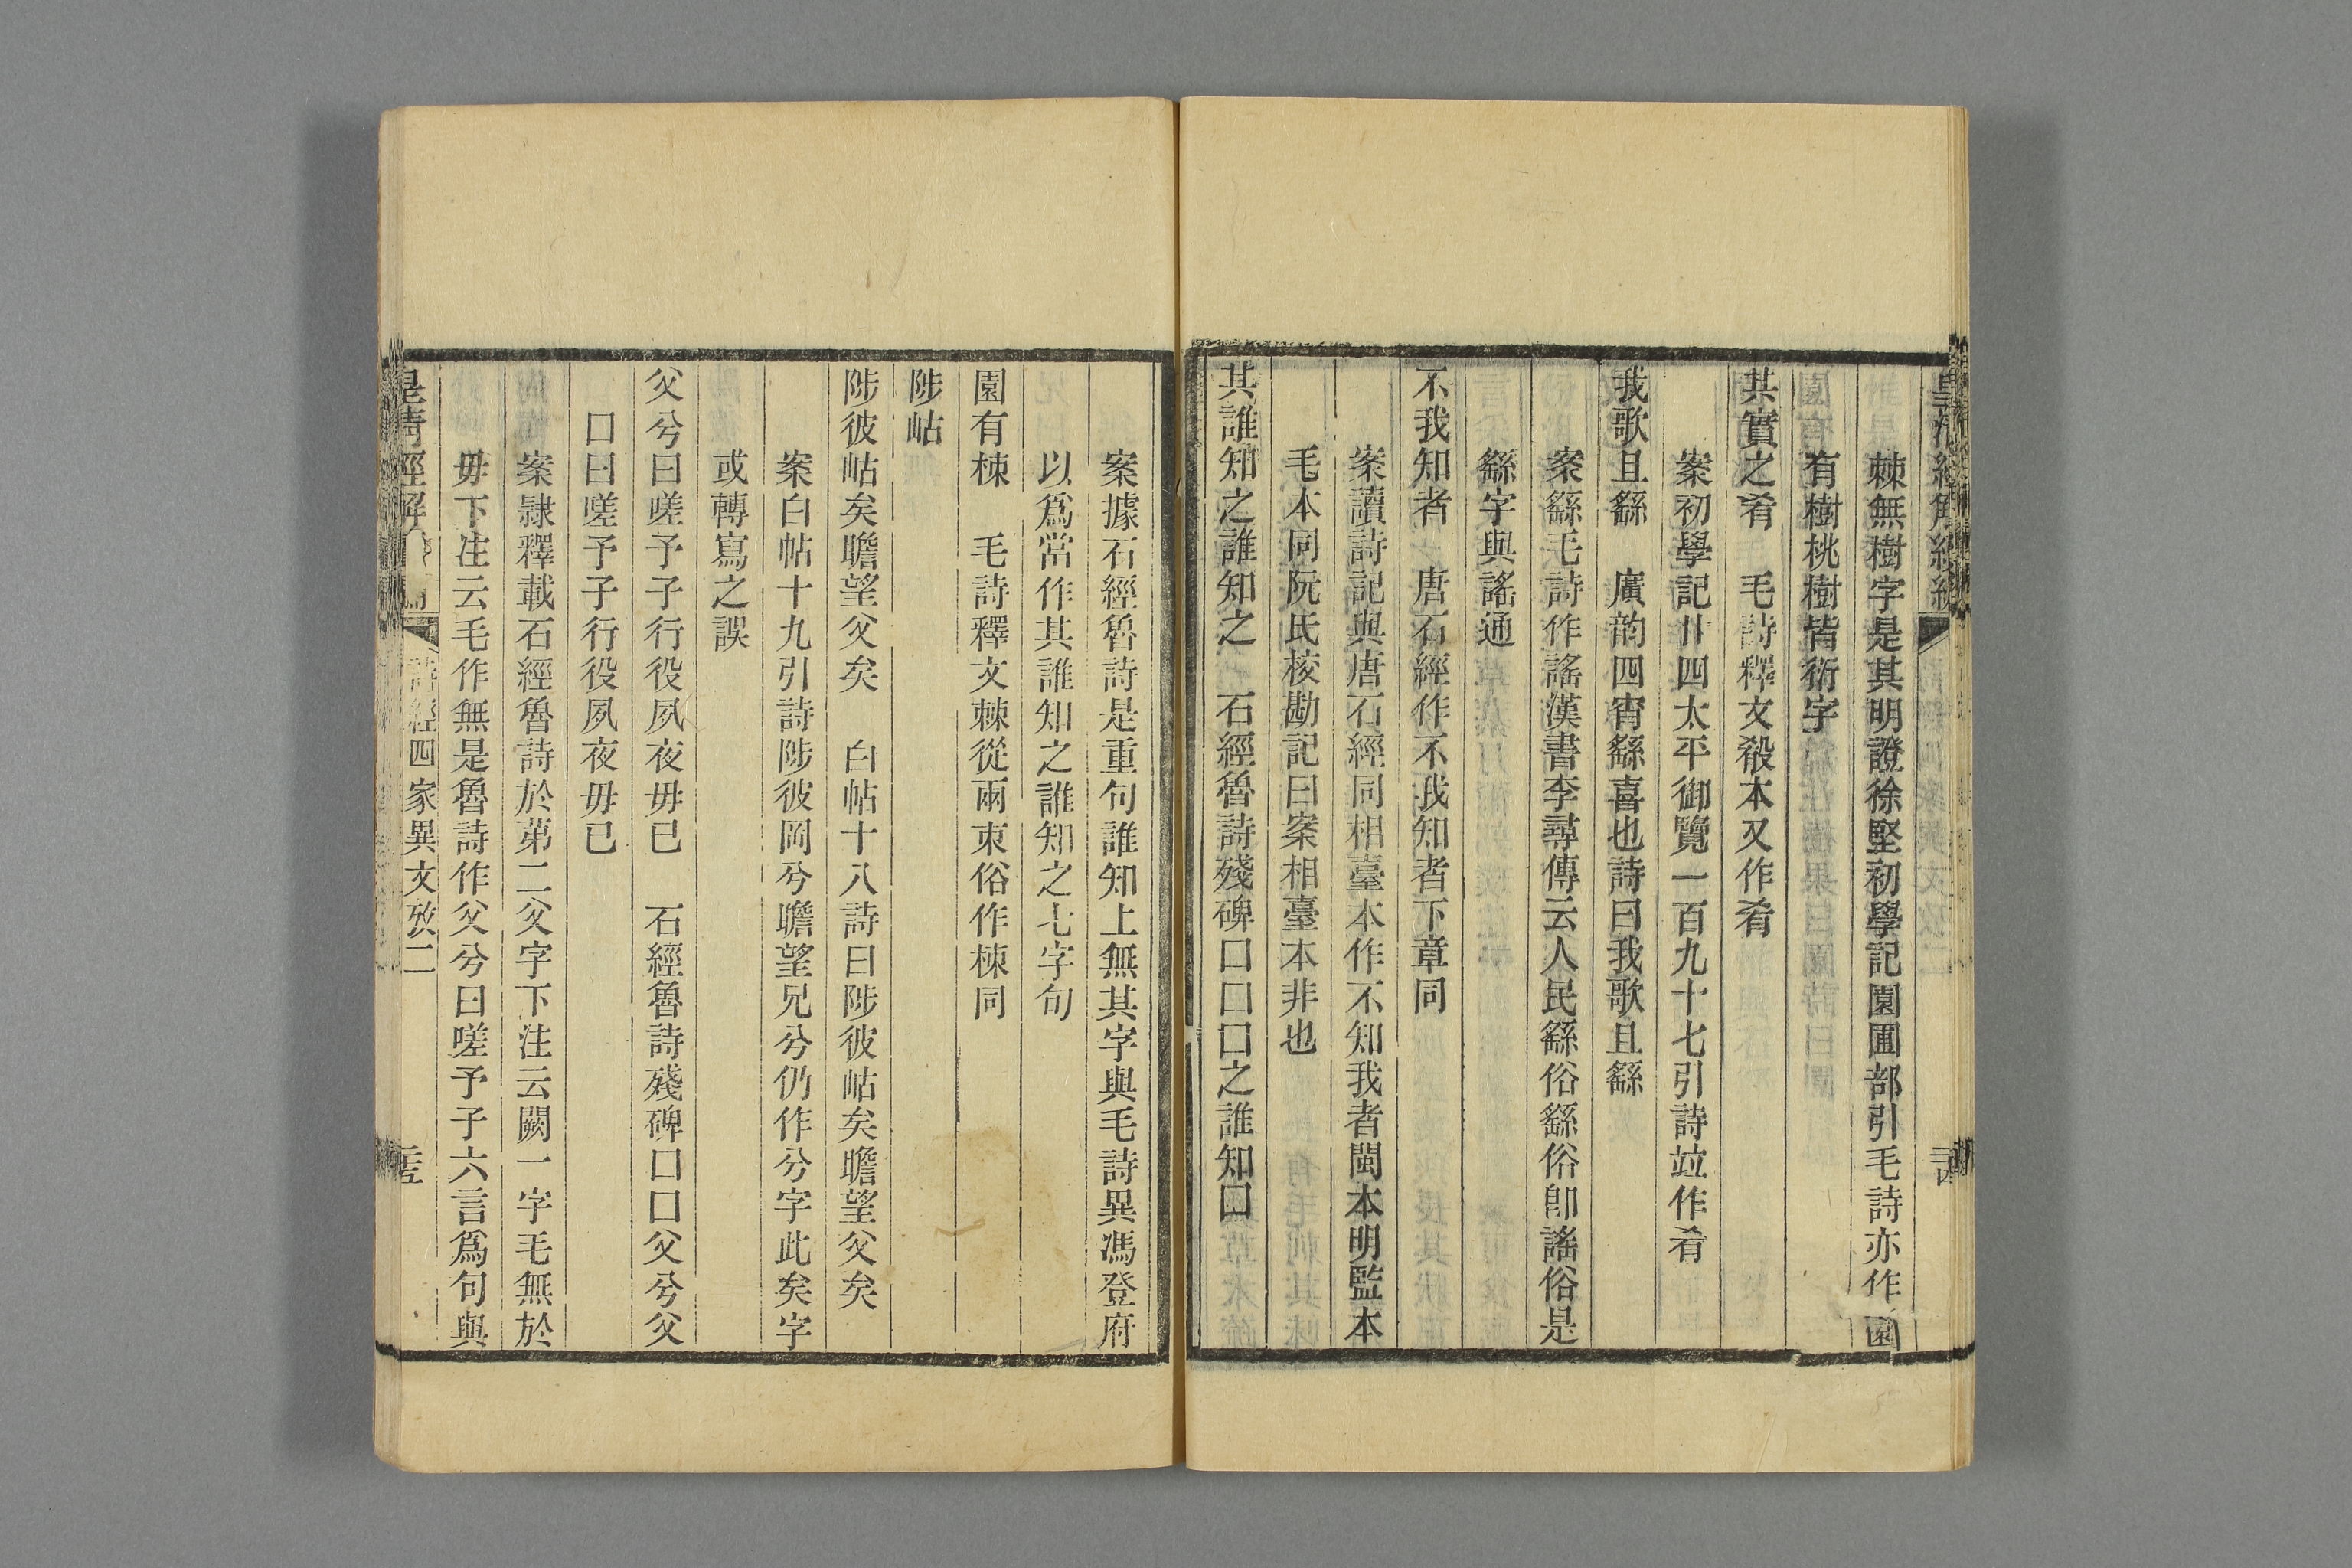 棘無樹字是其明證徐堅初學記園圃部引毛詩亦作園
有樹桃樹皆衍字
其實之肴　毛詩釋文殽本又作肴
案初學記卄四太平御覽一百九十七引詩竝作肴
我歌且繇　廣韵四宵繇喜也詩曰我歌且繇
案繇毛詩作謠漢書李尋傳云人民繇俗繇俗卽謠俗是
繇字與謠通
不我知者　唐石經作不我知者下章同
案讀詩記與唐石經同相臺本作不知我者閩本明監本
毛本同阮氏校勘記曰案相臺本非也
其誰知之誰知之　石經魯詩殘碑囗囗囗之誰知囗
案據石經魯詩是重句誰知上無其字與毛詩異馮登府
以爲當作其誰知之誰知之七字句
園有棟　毛詩釋文棘從兩朿俗作棟同
陟岵
陟彼岵矣瞻望父矣　白帖十八詩曰陟彼岵矣瞻望父矣
案白帖十九引詩陟彼岡兮瞻望兄兮仍作兮字此矣字
或轉寫之誤
父兮曰嗟予子行役夙夜毋已　石經魯詩殘碑囗囗父兮父
囗曰嗟予子行役夙夜毋已
案隸釋載石經魯詩於第二父字下注云闕一字毛無於
毋下注云毛作無是魯詩作父兮曰嗟予子六言爲句與
皇清經解 詩經四家異文攷二